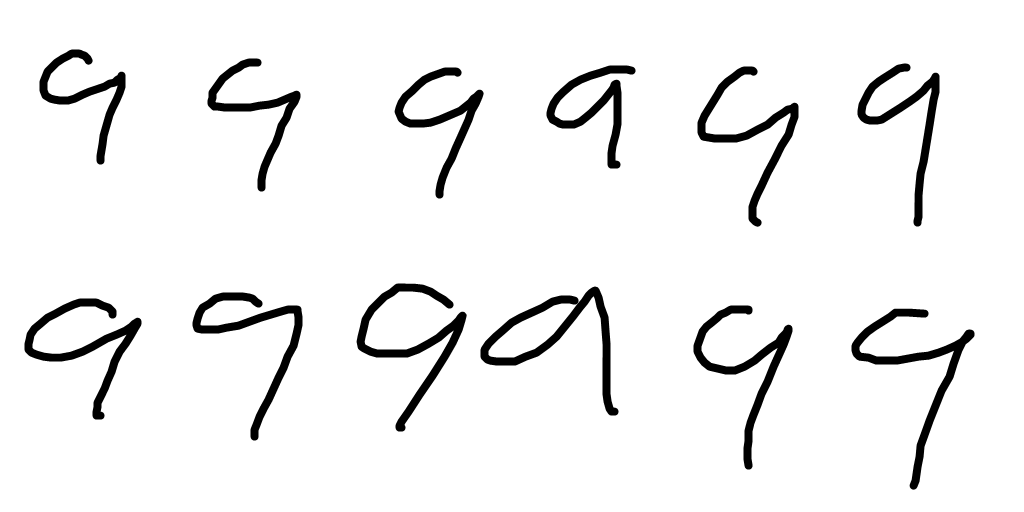 9 9 9 9 9 9
9 9 9 9 9 9